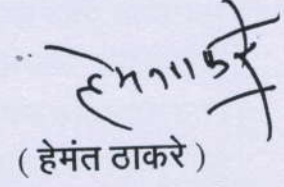 ( हेमंत ठाकरे )